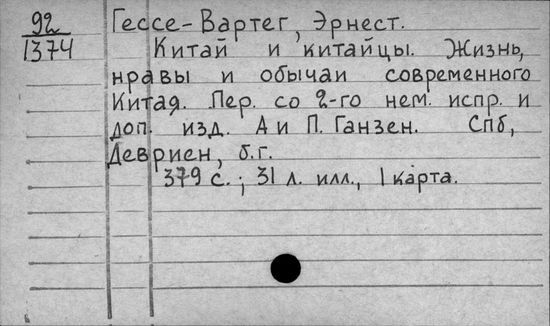 92
1374
Гессе-Вартег, Эрнест.
Китай и китайцы. Жизнь,
нравы и обычаи современного
Китая. Пер. со 2-го нем. испр. и
доп. изд. А и П. Ганзен. Спб,
Девриен, б.г.
379 с.; 31 л. илл., 1 карта.